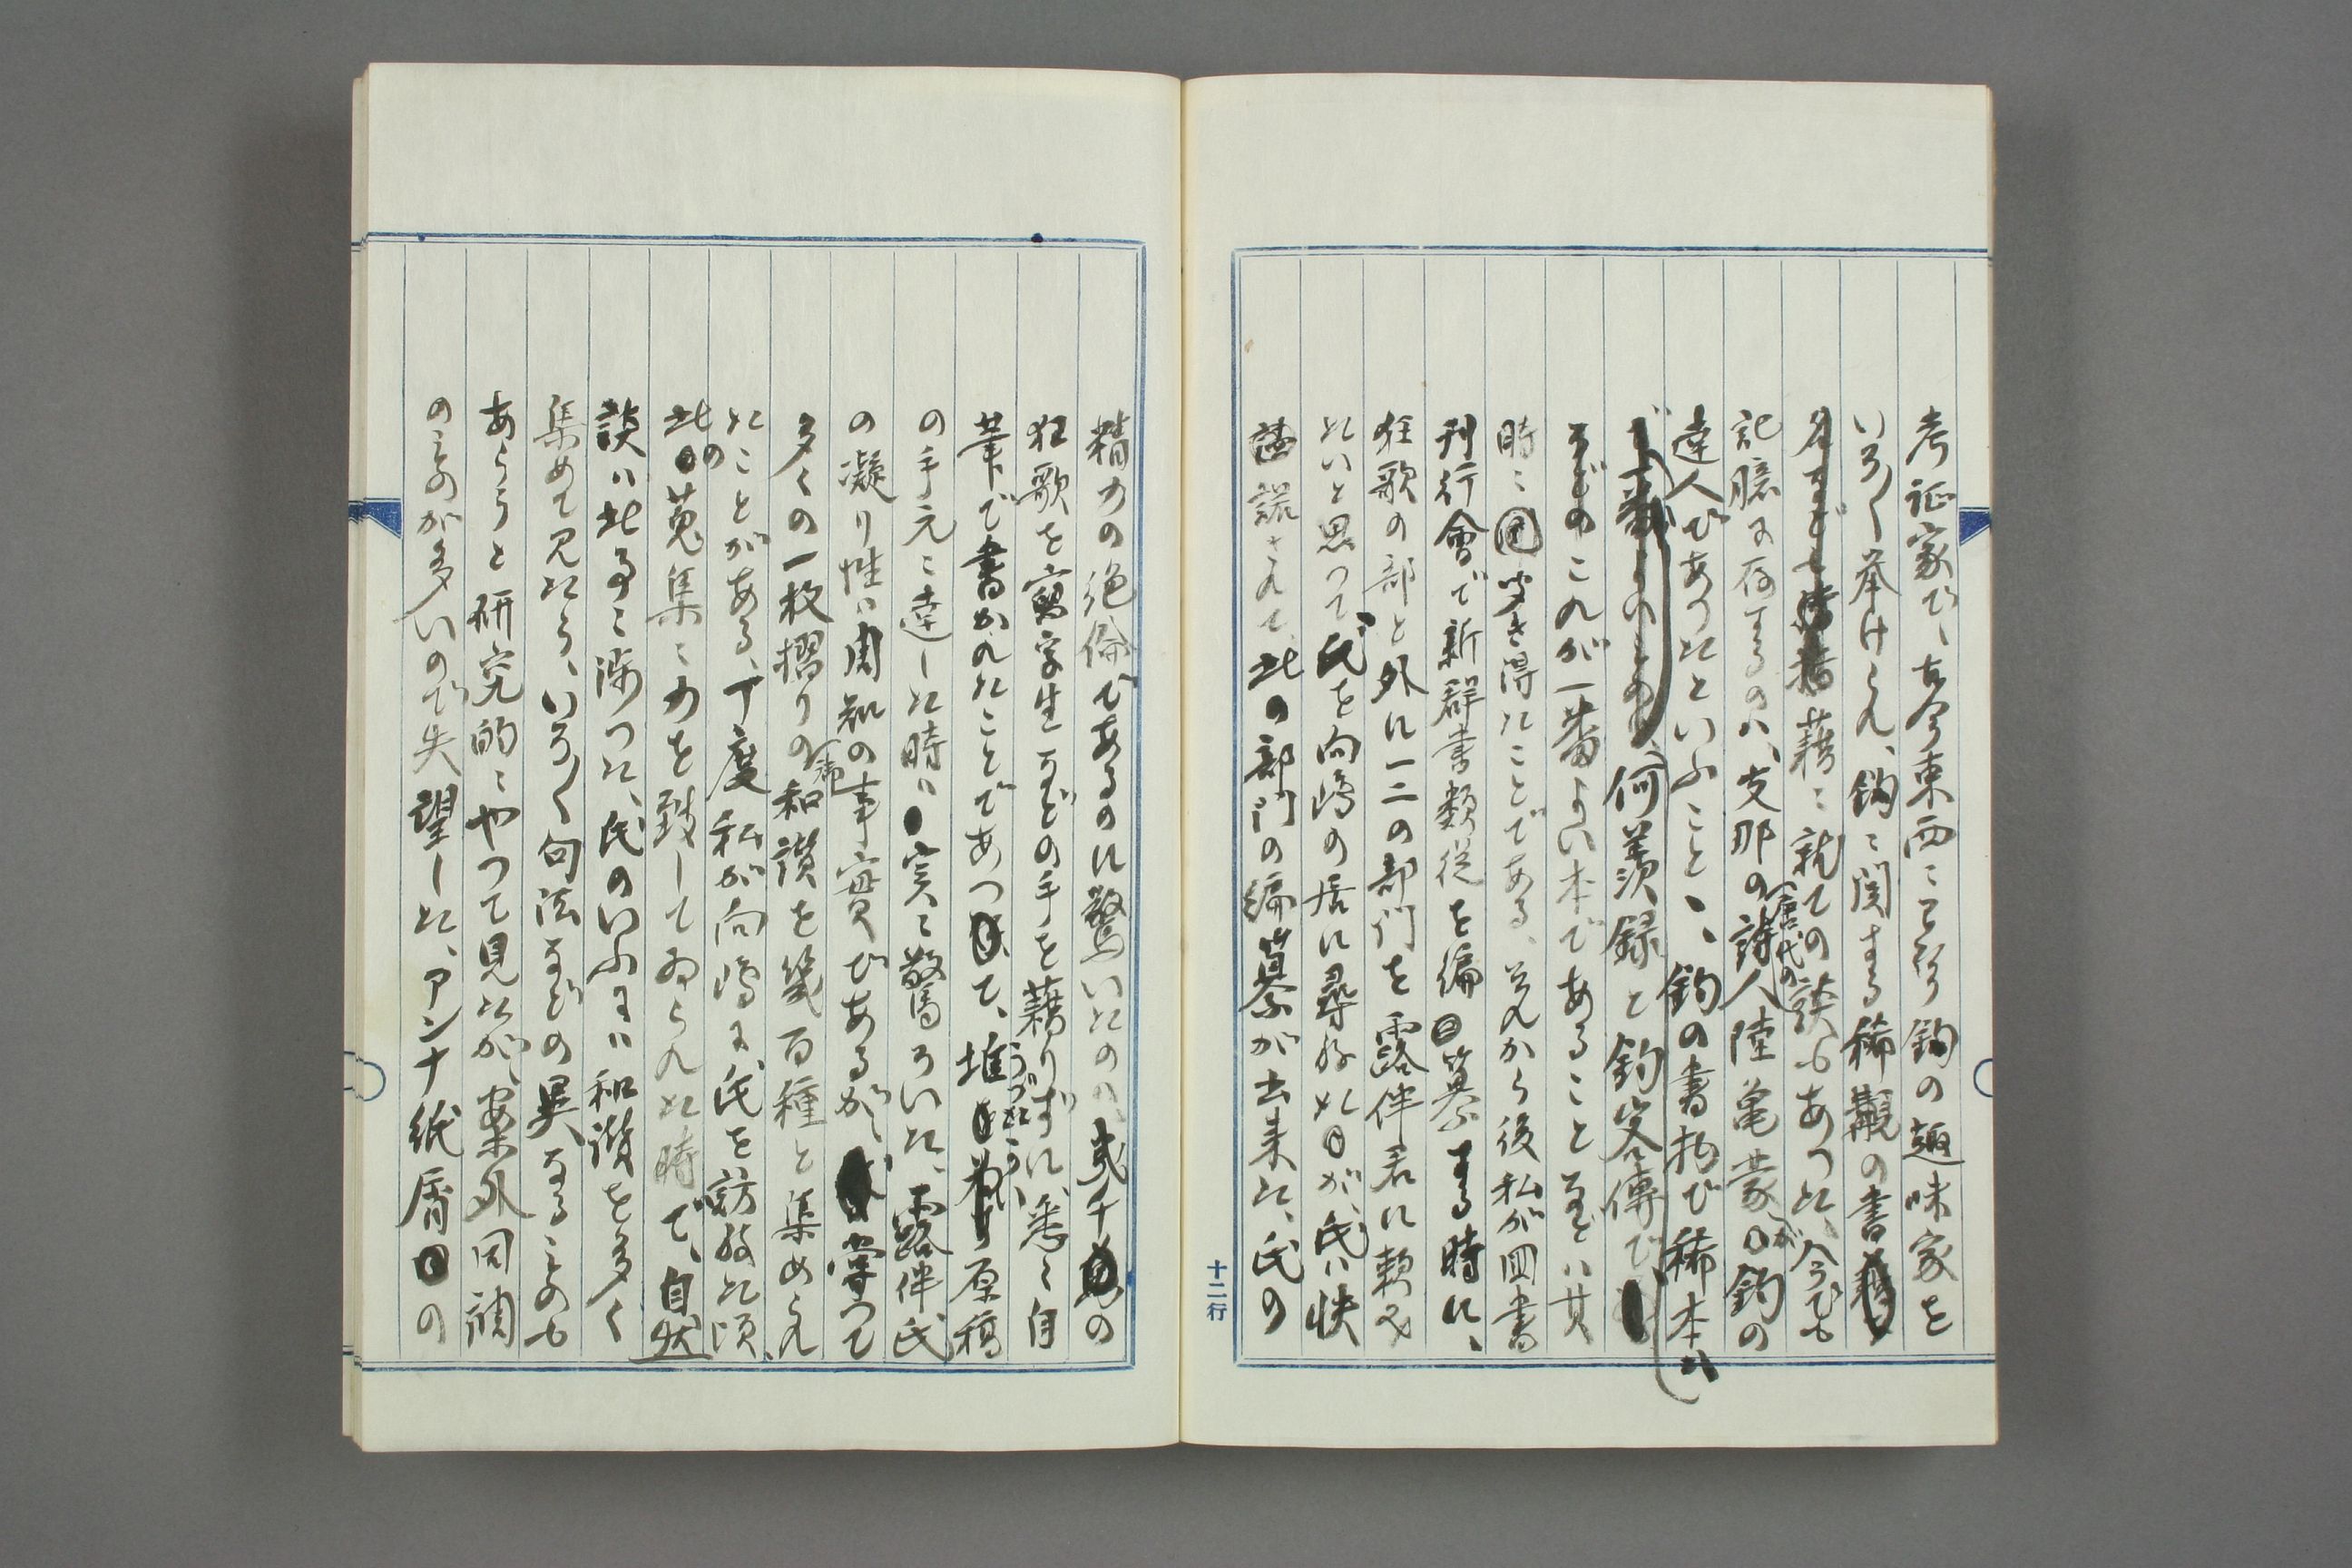 考証家で、古今東西にことなり釣の趣味家を
いろ〱挙けられ、釣に関する稀覯の書
籍に就ての談もあつた、今でも
記臆に存するのハ、支那の(唐代の)詩人陸亀蒙が釣の
達人であつたといふことゝ、釣の書物で稀本ハ
何羨録と釣客傳で
などのこれが一番よい本であることなどハ其
時に聞き得たことである、それから後私が図書
刊行會で新群書類従を編纂する時に、
狂歌の部と外に一二の部門を露伴君に頼み
たいと思つて氏を向嶋の居に尋ねたが、氏ハ快
諾されて、此の部門の編纂が出来た、氏の
精力の絶倫であるのに驚いたのハ、幾千の
狂歌を寫字生などの手を藉りずに、悉く自
筆で書かれたことであつて、堆うづたかい原稿
の手元に達した時ハ実に驚ろいた、露伴氏
の凝り性ハ周知の事實であるが、嘗つて
多くの一枚摺りの和讃を幾百種と集められ
たことがある、丁度私が向嶋に氏を訪ねた頃、
此の蒐集に力を致してゐられた時で、自然
談ハ此事に渉つた、氏のいふにハ和讃を多く
集めて見たら、いろ〱句法などの異なるものも
あらうと研究的にやつて見たが、案外同調
のものが多いので失望した、アンナ紙屑の
十二行